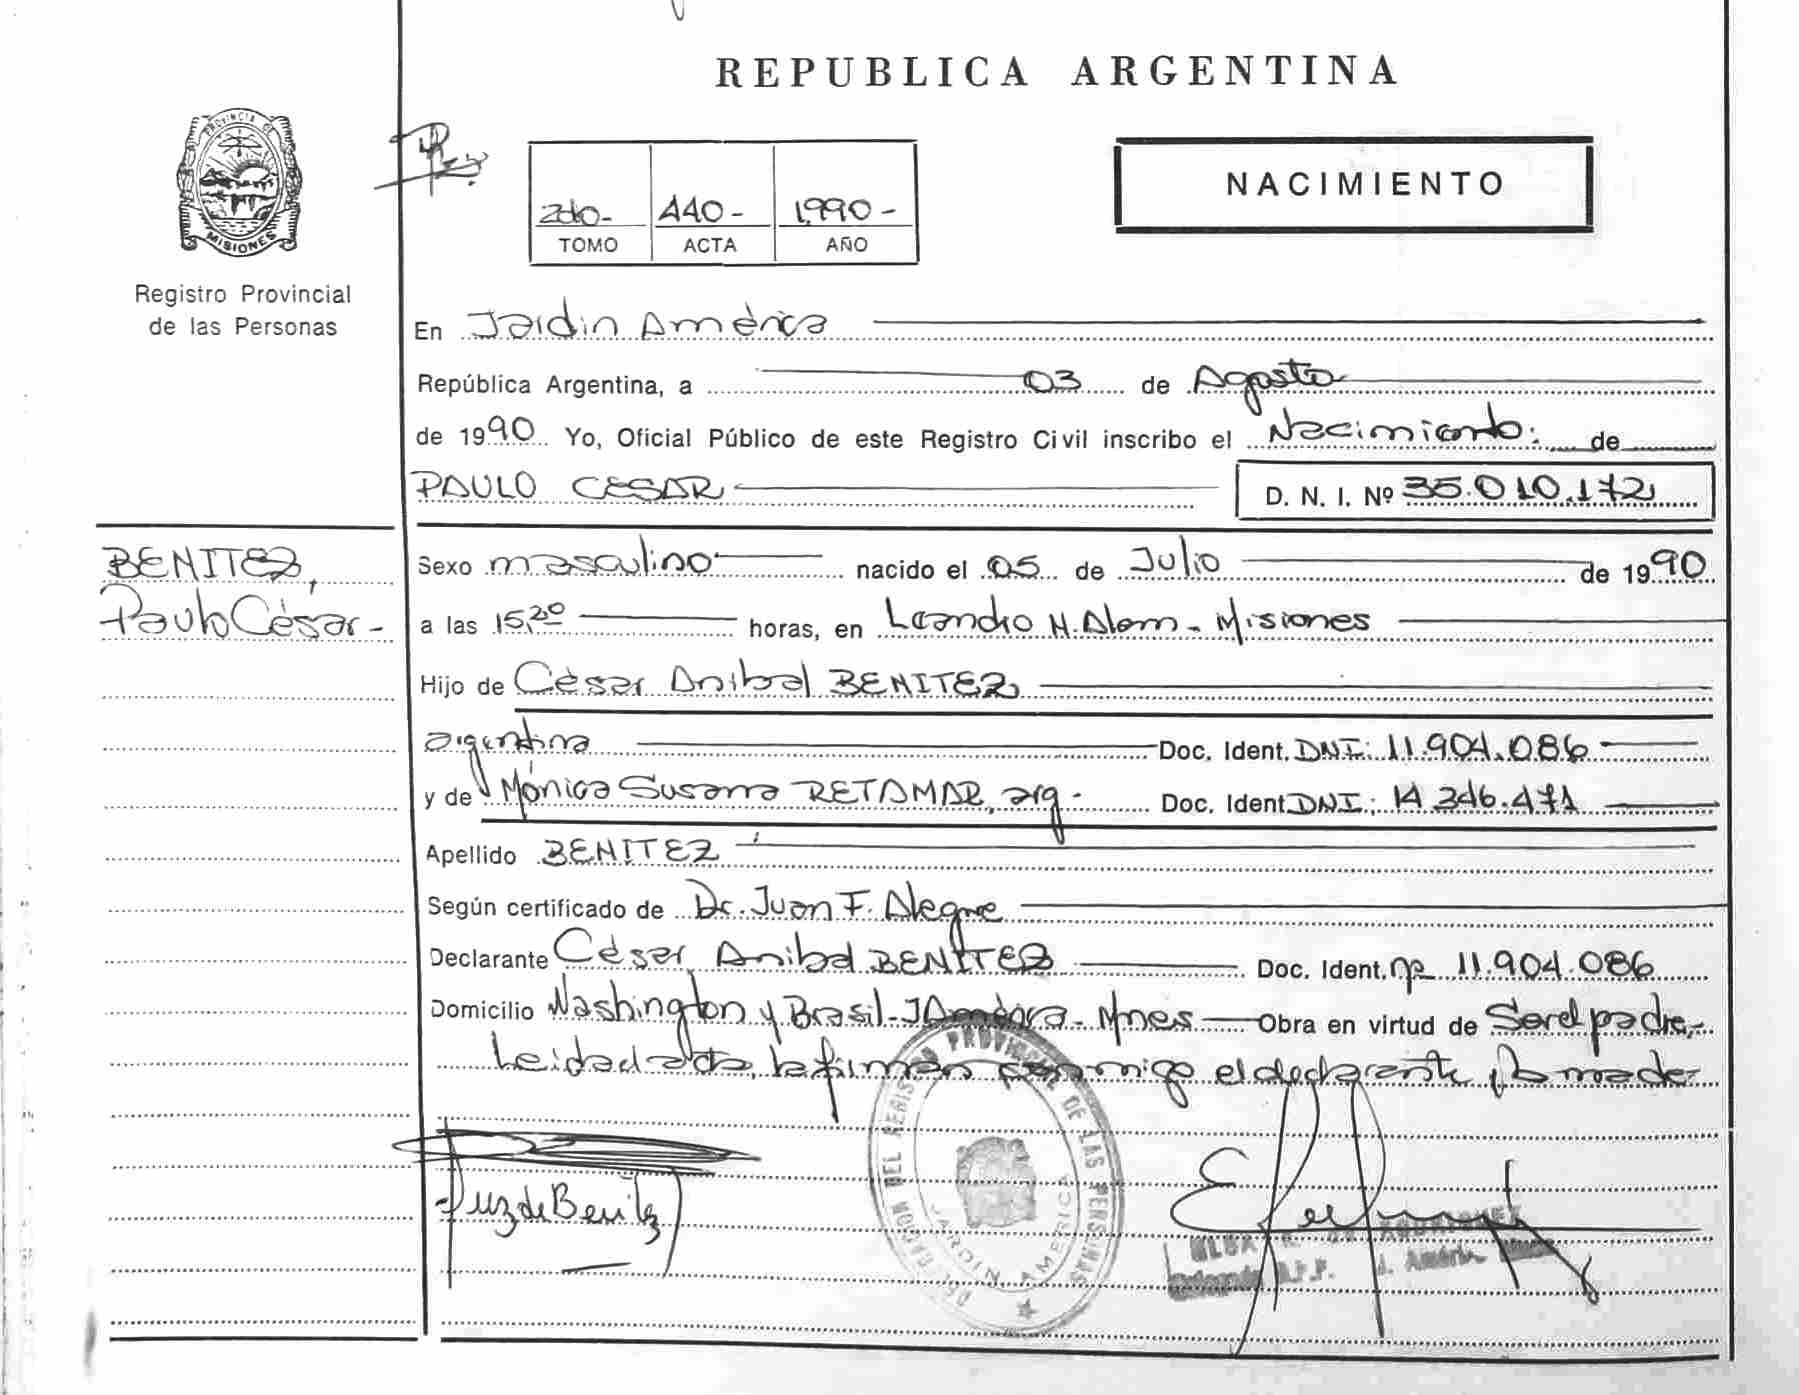 REPUBLICA ARGENTINA
PROVINCIA DE
MISIONES
Registro Provincial
de las Personas
2do- 440- 1.990-
TOMO ACTA AÑO
NACIMIENTO
En Jardin América
República Argentina, a 03 de Agosto
de 1990 Yo, Oficial Público de este Registro Civil inscribo el Nacimiento: de
PAULO CESAR D. N. I. Nº 35.010.172
BENITEZ,
Paulo César-
Sexo masculino nacido el 05 de Julio de 1990
a las 15,20 horas, en Leandro N. Alem - Misiones
Hijo de César Anibal BENITEZ,
argentina Doc. Ident. DNI: 11.904.086
y de Mónica Susana RETAMAR, arg. Doc. Ident DNI: 14.346.471
Apellido BENITEZ
Según certificado de Dr. Juan F. Alegre
Declarante César Anibal BENITEZ Doc. Ident. nº 11.904.086
Domicilio Washington y Brasil - J América - Mnes Obra en virtud de Ser el padre,
Leida el acta, la firman conmigo el declarante y la madre
DELEGACION DEL REGISTRO PROVINCIAL DE LAS PERSONAS
JARDIN AMERICA
de Benitez
ELBA
J. América